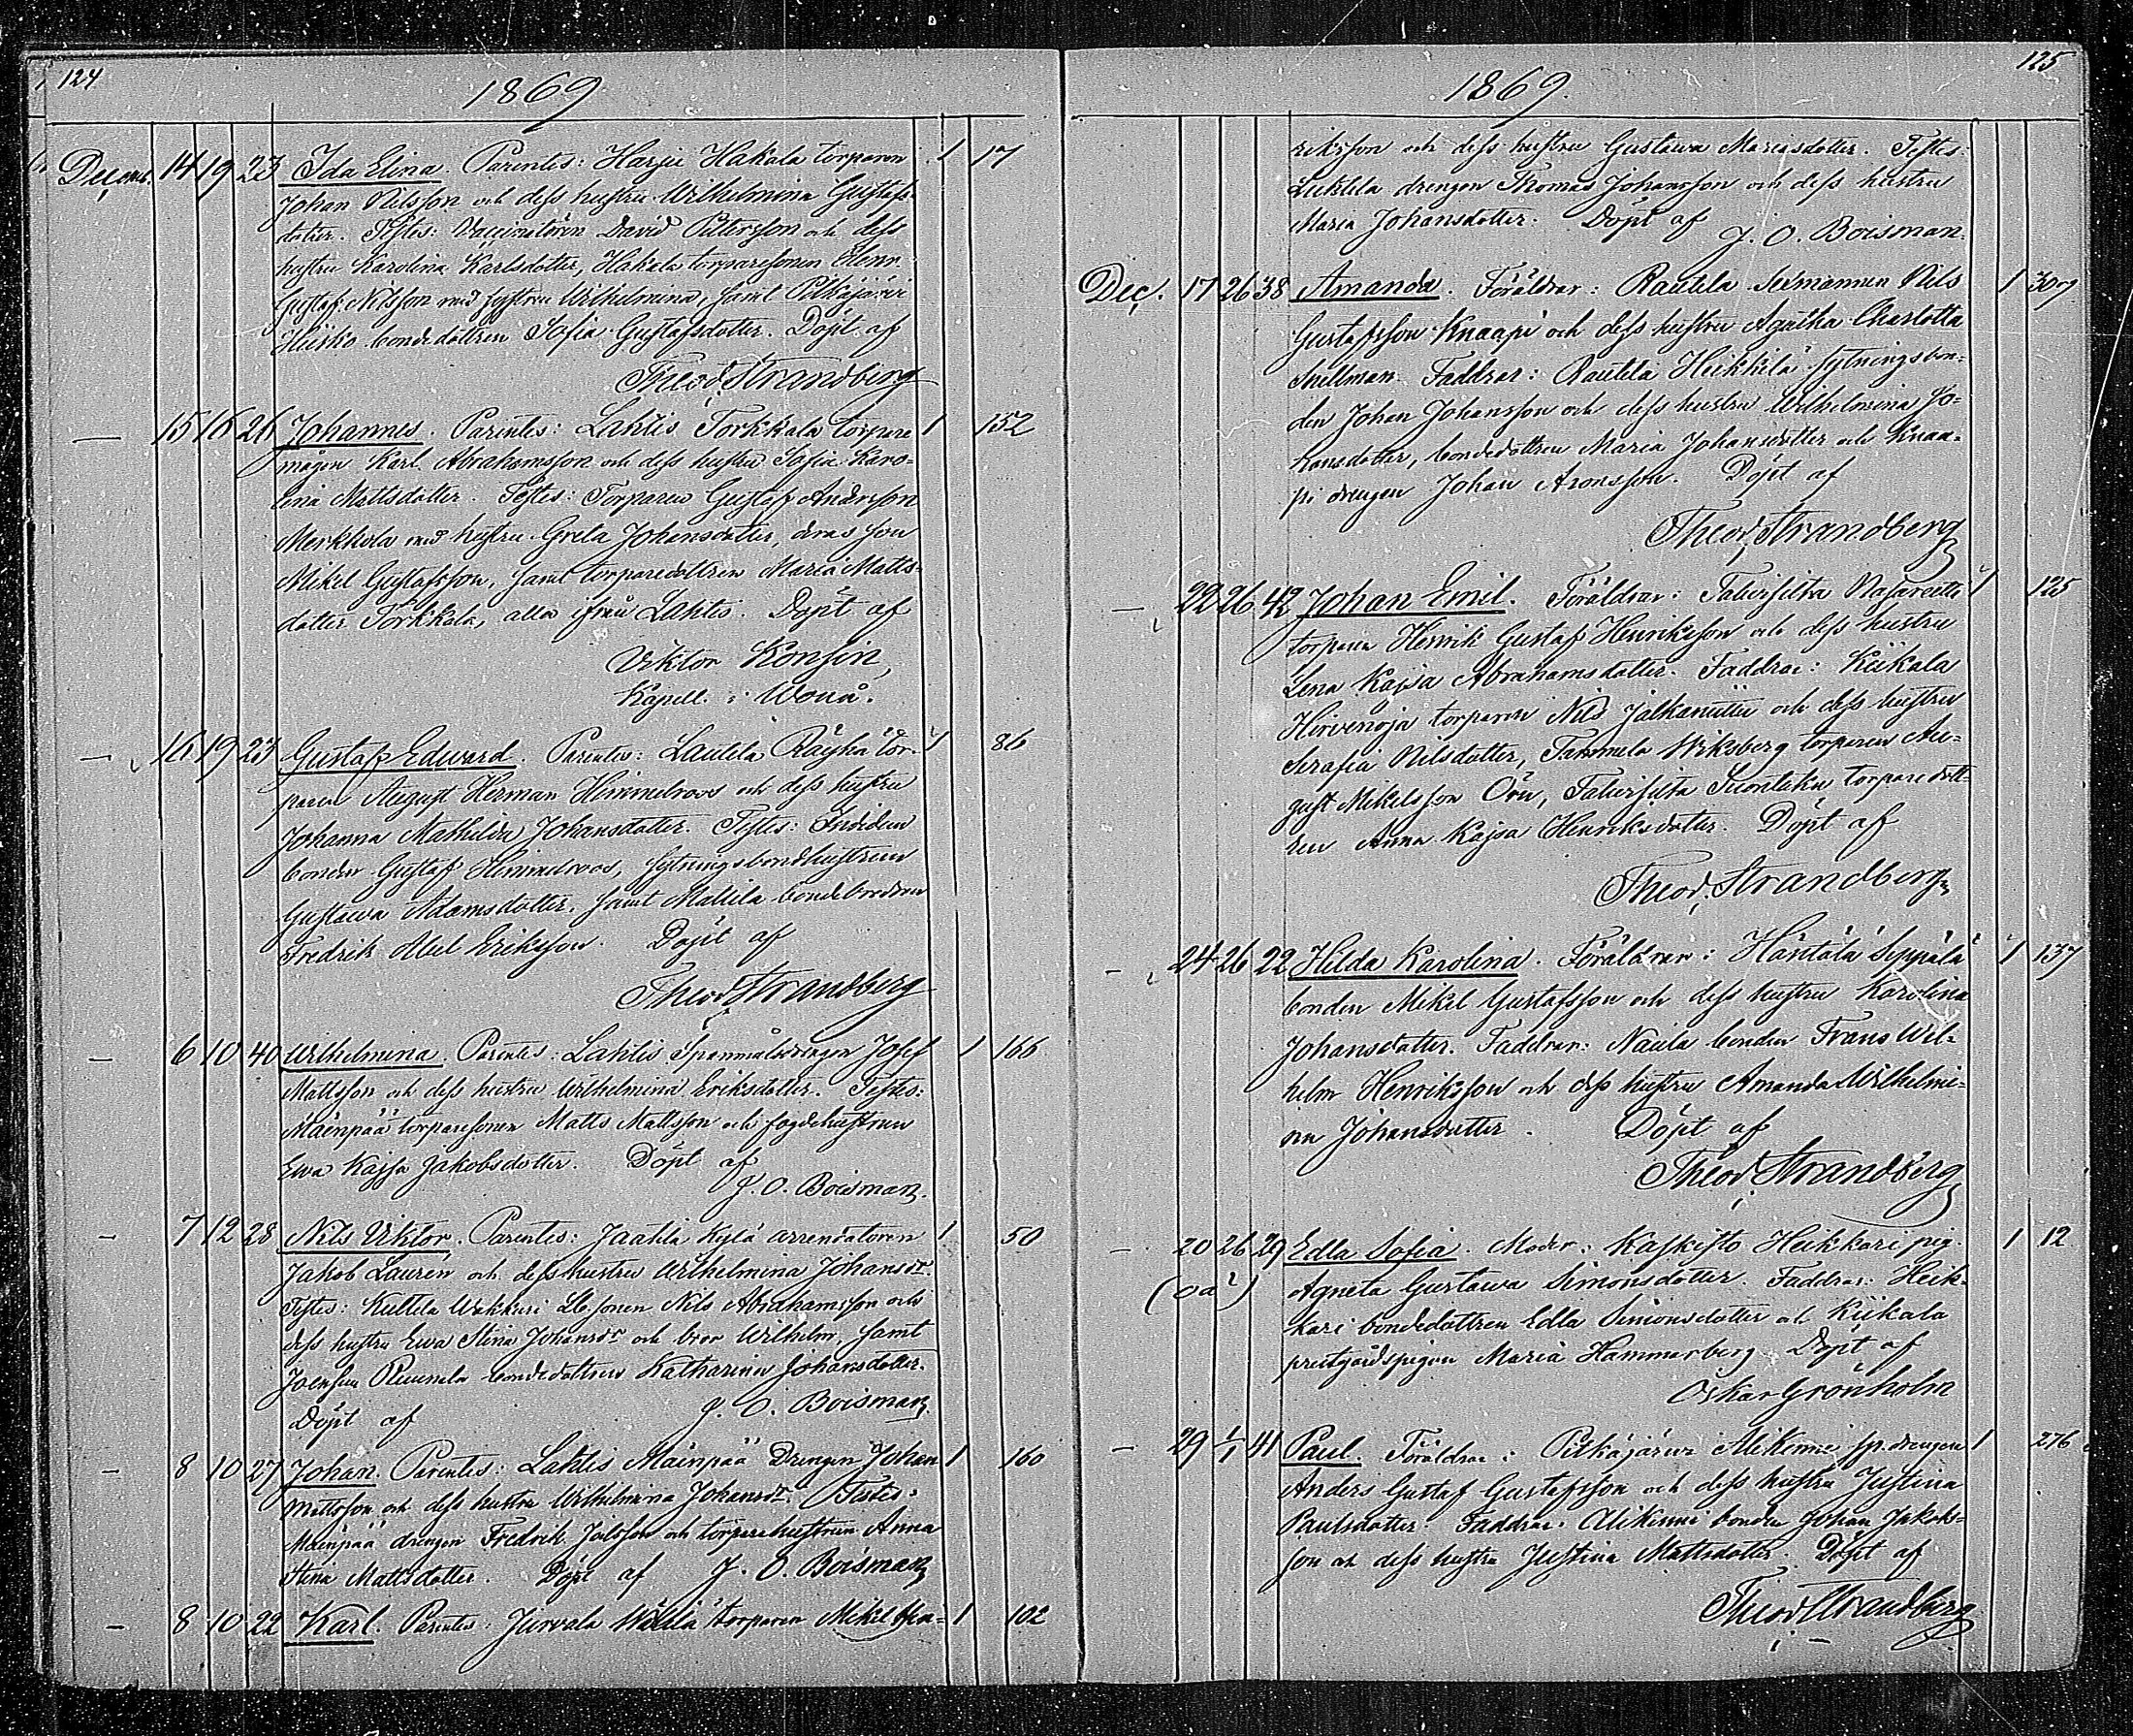 124
1869
Decemb. 14 19 23 Ida Elina. Parentes: Harju Hakala torparen 1 17
Johan Nilsson och dess hustru Wilhelmina Gustafs-
dotter. Testes: Vaccinatören David Pettersson och dess
hustru Karolina Karlsdotter, Hakala torparesonen
Gustaf Nilsson med hustru Wilhelmina, samt Pitkäjärvi
bondedottren Sofia Gustafsdotter. Döpt af
Theod. Strandberg
— 15 16 26 Johannes. Parentes: Lahtis Torkkala torpare 1 152
mågen Karl Abrahamsson och dess hustru Sofia Karo-
lina Mattsdotter. Testes: Torparen Gustaf Andersson
Merkkola med hustru Greta Johansdotter, deras son
Mikel Gustafsson, samt torparedottren Maria Matts-
dotter Torkkala, alla ifrån Lahtis. Döpt af
Viktor Konsin,
Kapell. i Wonå.
— 16 19 23 Gustaf Edward. Parentes: Lautela Räyhä tor- 1 86
paren August Herman Himmelroos och dess hustru
Johanna Mathilda Johansdotter. Testes:
bonden Gustaf Himmelroos, sytningsbondhustrun
Gustawa Adamsdotter, samt Mattila bondebrodren
Fredrik Abel Eriksson. Döpt af
Theod. Strandberg
— 6 10 40 Wilhelmina. Parentes: Lahtis Spanmålsdrengen Josef 1 166
Mattsson och dess hustru Wilhelmina Eriksdotter. Testes:
Mäenpää torparesonen Matts Mattsson och fogdehustrun
Ewa Kajsa Jakobsdotter. Döpt af
J. O. Boisman.
— 7 12 28 Nils Viktor. Parentes: Jaatila Kylä arrendatoren 1 50
Jakob Lauren och dess hustru Wilhelmina Johansdr.
Testes: Kultela Wakkuri Lbsonen Nils Abrahamsson och
dess hustru Ewa Stina Johansdr och bror Wilhelm, samt
Joensuu bondedottren Katharina Johansdotter.
Döpt af J. O. Boisman.
— 8 10 27 Johan. Parentes: Lahtis Mäinpää Drengen Johan 1 160
Mattsson och dess hustru Wilhelmina Johansdr. Testes:
Mäinpää drengen Fredrik och torparehustrun Anna
Stina Mattsdotter. Döpt af J. O. Boisman
— 8 10 22 Karl. Parentes: torparen Mikel Hen- 1 102
125
1869.
riksson och dess hustru Gustawa Mariasdotter. Testes:
drengen Thomas Johansson och dess hustru
Maria Johansdotter. Döpt af
J. O. Boisman.
Dec. 17 26 38 Amanda. Föräldrar: Rautila Sexmannen Nils 1 307
Gustafsson Knaapi och dess hustru Agatha Charlotta
Snellman. Faddrar: Rautila Heikkilä sytningsbon-
den Johan Johansson och dess hustru Wilhelmina Jo-
hansdotter, bondedottren Maria Johansdotter och Knaa-
pi drengen Johan Aronsson. Döpt af
Theod. Strandberg
— 22 26 42 Johan Emil. Föräldrar: 1 125
torparen Henrik Gustaf Henriksson och dess hustru
Lena Kajsa Abrahamsdotter. Faddrar: Kiikala
Hirvenoja torparen Nils Jalkanuttu och dess hustru
Serafia Nilsdotter, Tammela Wiksberg torparen Au-
gust Mikelsson Örn, torparedott-
ren Anna Kajsa Henriksdotter. Döpt af
Theod. Strandberg
— 24 26 22 Hilda Karolina. Föräldrar: Häntälä Seppälä 1 137
bonden Mikel Gustafsson och dess hustru Karolina
Johansdotter. Faddrar: Naula bonden Frans Wil-
helm Henriksson och dess hustru Amanda Wilhelmi-
na Johansdotter. Döpt af
Theod. Strandberg
— 20 26 29 Edla Sofia. Moder: Kaskisto Heikkari pig. 1 12
(oä) Agneta Gustawa Simonsdotter. Faddrar: Heik-
kari bondedottren Edla Simonsdotter och Kiikala
prestgårdspigan Maria Hammarberg. Döpt af
Oskar Grönholm
— 29 1/1 41 Paul. Föräldrar: Pitkäjärvi Alikinni sp.drengen 1 276
Anders Gustaf Gustafsson och dess hustru Justina
Paulsdotter. Faddrar: Alikinni bonden Johan Jakobs-
son och dess hustru Justina Mattsdotter. Döpt af
Theod. Strandberg